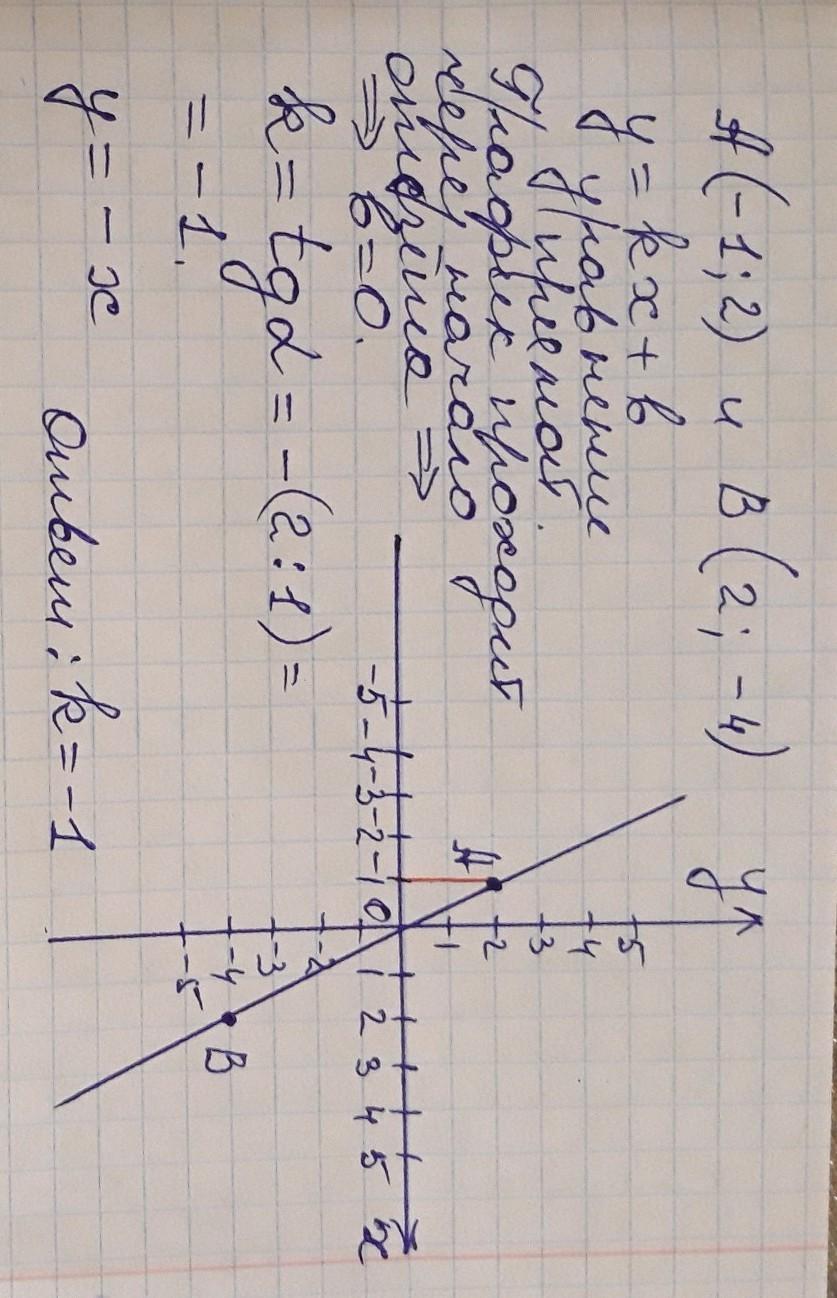 A(-1; 2) и B(2; -4)
y = kx + b
уравнение
прямой.
График проходит
через начало
отсчёта ⇒
⇒ b = 0.
k = tg α = -(2:1) =
= -1.
y = -x
Ответ: k = -1
y
5
4
3
2
1
A
-5 -4 -3 -2 -1 0 1 2 3 4 5 x
-2
-3
-4
-5
B